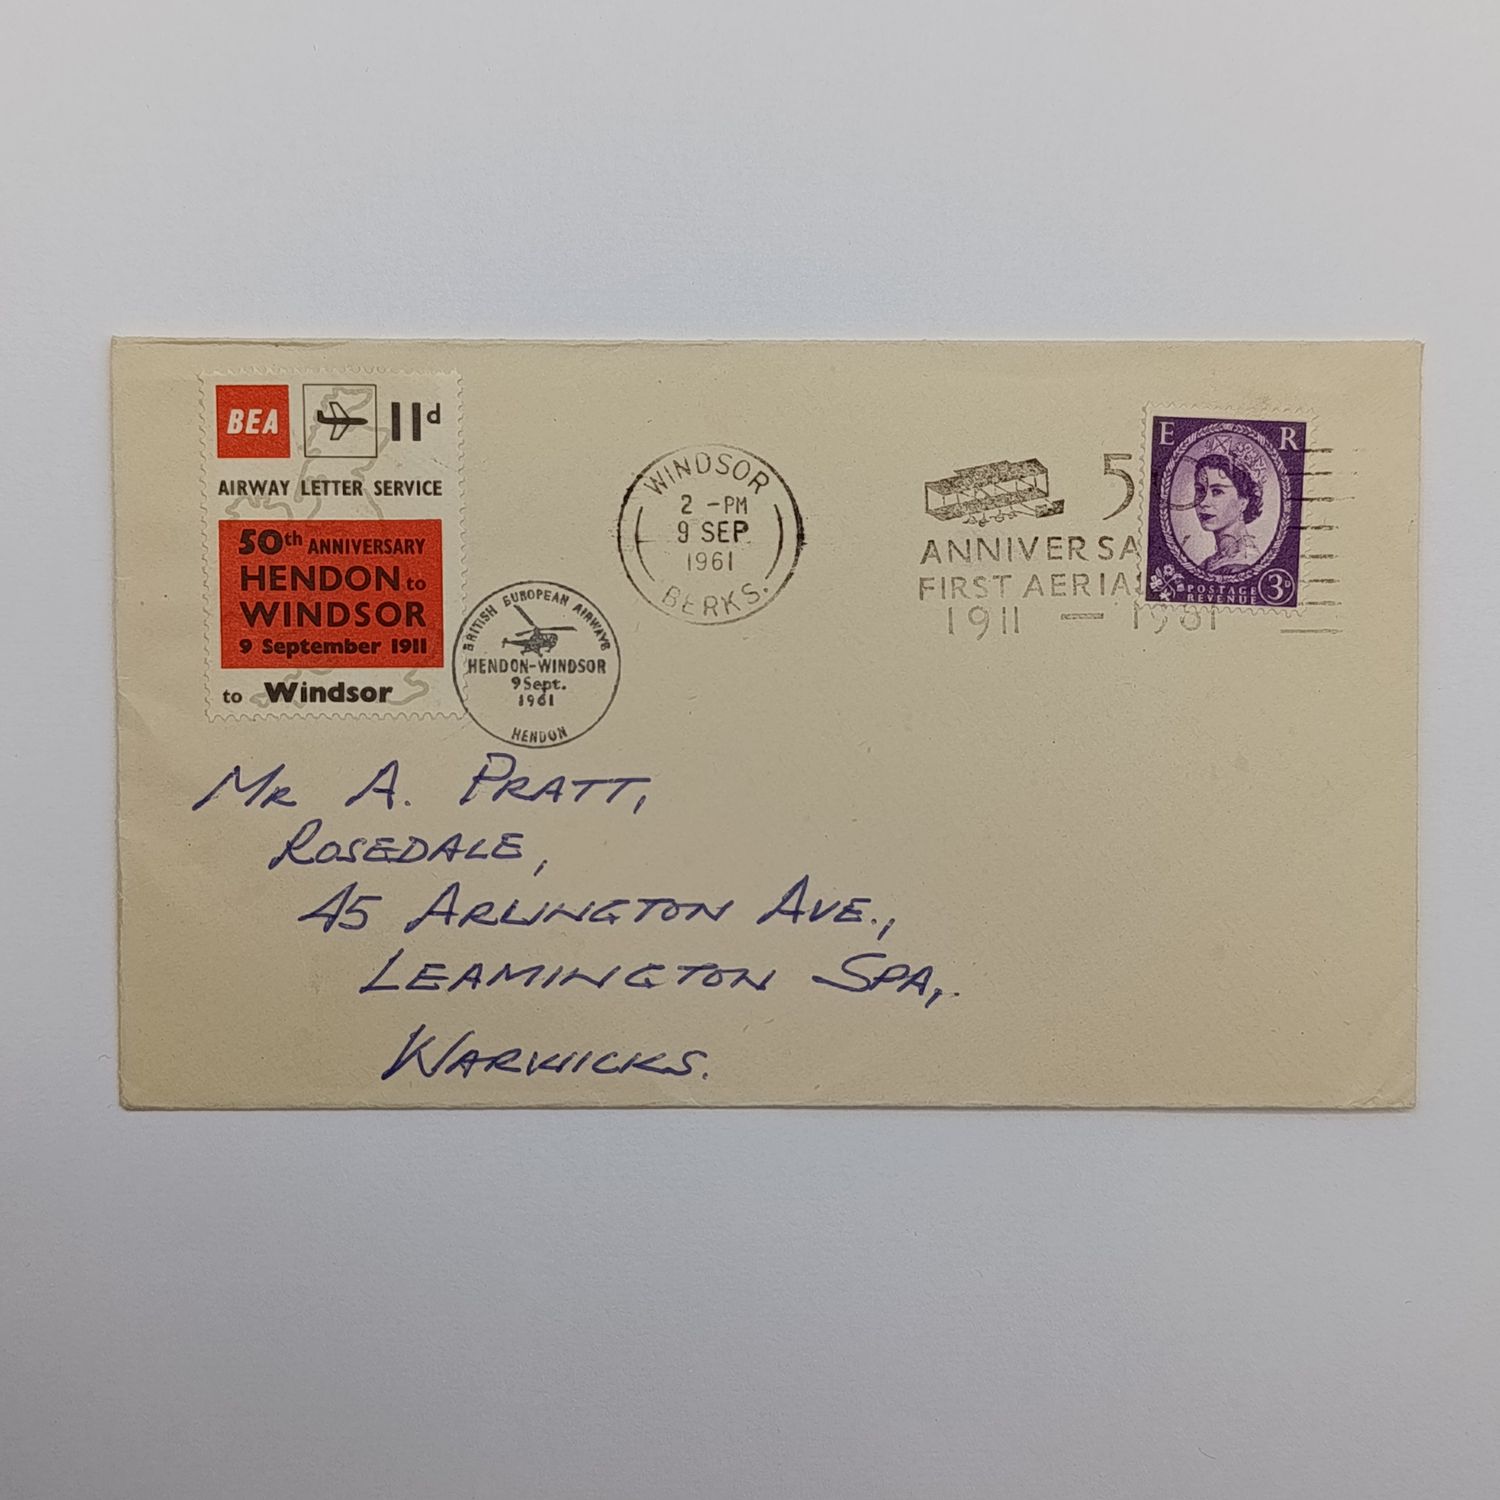 BEA 11d
AIRWAY LETTER SERVICE
50th ANNIVERSARY
HENDON to
WINDSOR
9 September 1911
to Windsor
BRITISH EUROPEAN AIRWAYS
HENDON-WINDSOR
9 Sept.
1961
HENDON
WINDSOR
2 -PM
9 SEP
1961
BERKS.
50
ANNIVERSA
FIRST AERIA
1911 — 1961
E R
POSTAGE
REVENUE
3D
MR A. PRATT,
ROSEDALE,
45 ARLINGTON AVE.,
LEAMINGTON SPA,.
WARWICKS.